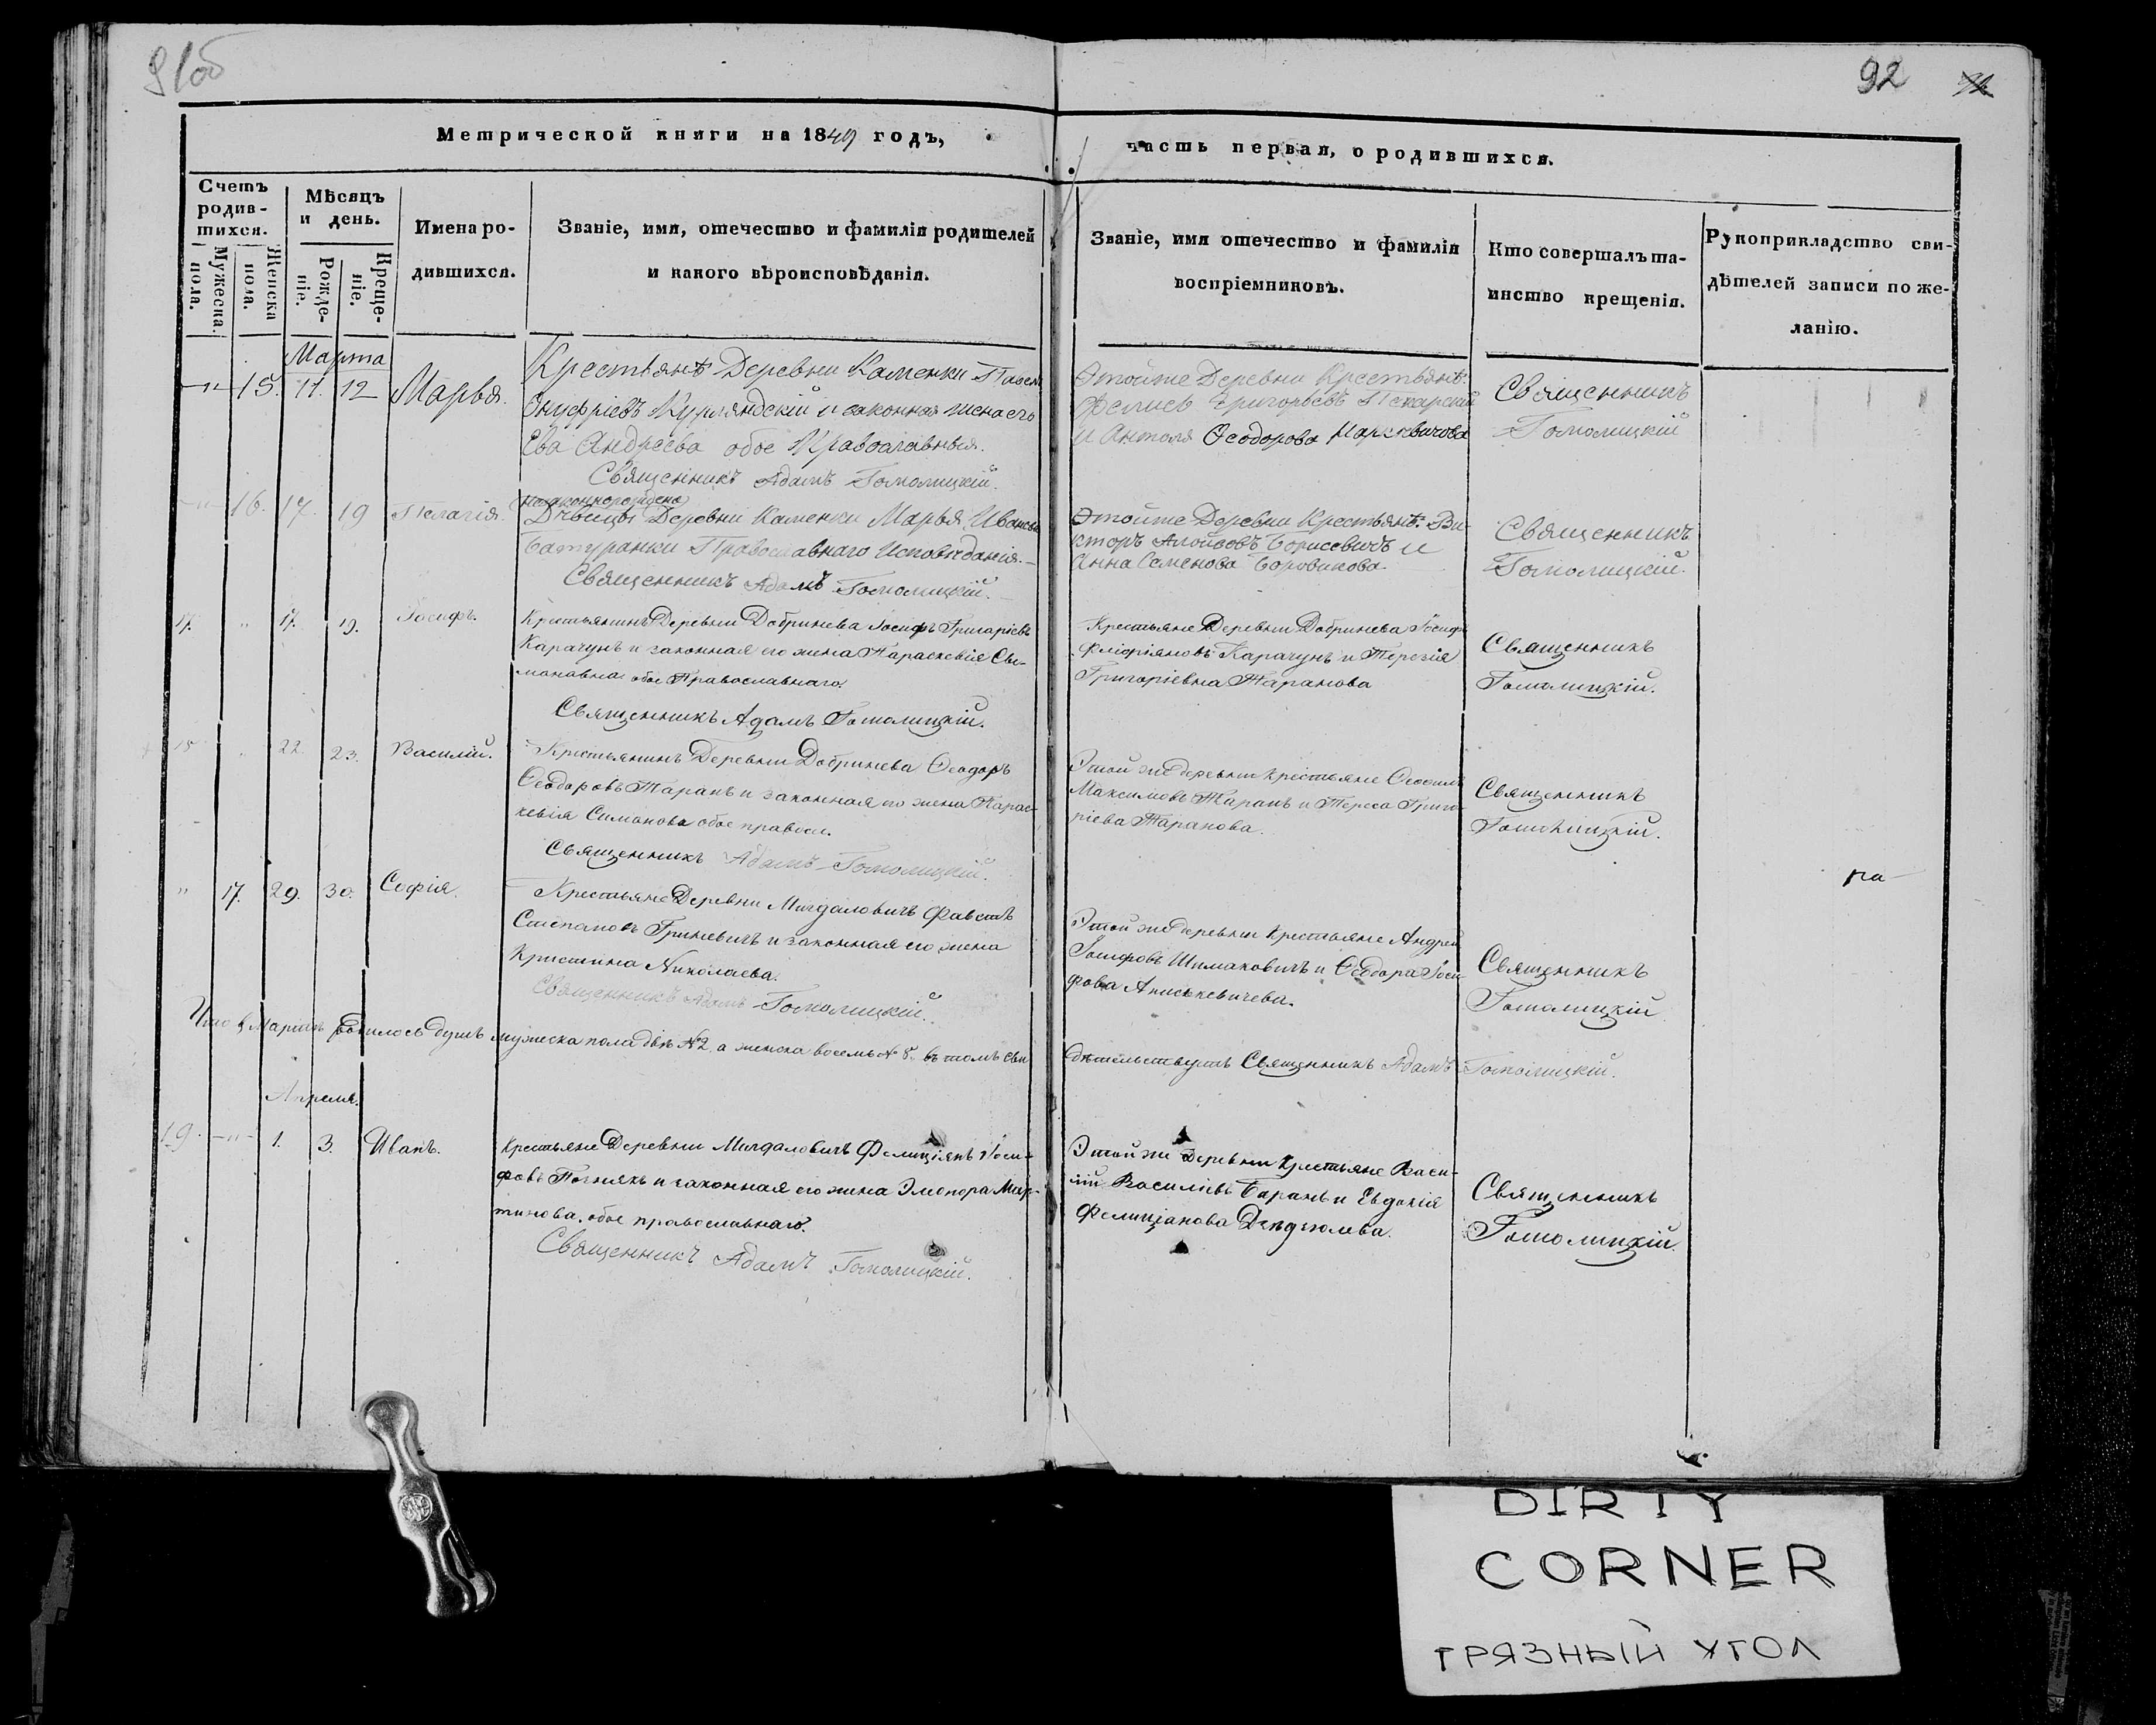 91об
92
Метрической книги на 1849 годъ,
часть первая, о родившихся.
Счетъ родив-шихся.
Мужеска. пола.
Женска пола.
Мѣсяцъ и день.
Рожде-ніе.
Креще-ніе.
Имена ро-дившихся.
Званіе, имя, отечество и фамилія родителей
и какого вѣроисповѣданія.
Званіе, имя отечество и фамилія
воспріемниковъ.
Кто совершалъ та-
инство крещенія.
Рукоприкладство сви-
дѣтелей записи по же-
ланію.
Марта
-"- 15. 11. 12 Марья.
Крестьянѣ Деревни Каменки
Онуфріевъ Курляндскій и законная жена его
Ева Андреева обое Православныя.
Священникъ Адамъ Гомолицкій.
Этойже Деревни Крестьянѣ:
Феликъ Григорьевъ Пекарскій
и Антоля Ѳеодорова
Священникъ
Гомолицкій
-"- 16. 17. 19 Пелагія.
незаконнорождена
Дѣвицы Деревни Каменки Марья Иванова
Батуранки Православнаго Исповѣданія.
Священникъ Адамъ Гомолицкій.
Этойже Деревни Крестьянѣ: Ви-
кторъ Алойзовъ Борисевичъ и
Анна Семенова Боровикова.
Священникъ
Гомолицкій.
17. " 17. 19. Іосифъ.
Крестьянинъ Деревни Добринева Іосифъ Григоріевъ
Карачунъ и законная его жена Параскевія Си-
мановна обое Православнаго.
Священникъ Адамъ Гомолицкій.
Крестьяне Деревни Добринева Іосифъ
Карачунъ и Терезія
Григоріевна Таранова
Священникъ
Гомолицкій.
" 22. 23. Василій.
Крестьянинъ Деревни Добринева Ѳеодоръ
Ѳеодоровъ Таранъ и законная его жена Парас-
кевія Симонова обое правосл.
Священникъ Адамъ Гомолицкій.
Этой же деревни крестьяне
Максимовъ Таранъ и Тереса Григо-
ріева Таранова.
Священникъ
Гомолицкій.
" 17. 29. 30. Софія.
Крестьяне Деревни Мигдаловичъ Фавстъ
Степановъ Гриневичъ и законная его жена
Кристина Николаева.
Священникъ Адамъ Гомолицкій.
Этой же деревни крестьяне Андрей
Іосифовъ Шимаковичъ и Ѳеодора Іоси-
фова
Священникъ
Гомолицкій
па
Что въ Мартѣ родилось душъ мужеска пола двѣ №2, а женска восемь №8. въ томъ сви
дѣтельствуетъ Священникъ Адамъ Гомолицкій.
Апреля.
19. -"- 1. 3. Иванъ.
Крестьяне Деревни Мигдаловичъ Фелиціянъ Іоси-
фовъ и законная его жена Элеонора Мар-
тинова, обое православнаго.
Священникъ Адамъ Гомолицкій.
Этой же Деревни Крестьяне Васи-
лій Василіевъ Баранъ и Евдокія
Фелиціанова
Священникъ
Гомолицкій.
DIRTY
CORNER
ГРЯЗНЫЙ УГОЛ